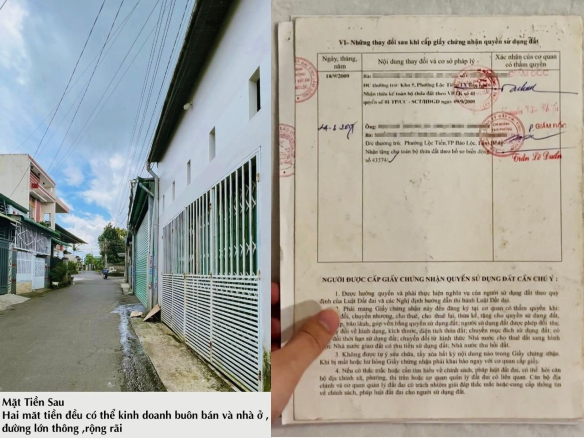 Mặt Tiền Sau
Hai mặt tiền đều có thể kinh doanh buôn bán và nhà ở ,
đường lớn thông ,rộng rãi
VI- Những thay đổi sau khi cấp giấy chứng nhận quyền sử dụng đất
Ngày, tháng, năm
Nội dung thay đổi và cơ sở pháp lý
Xác nhận của cơ quan có thẩm quyền
18/9/2009
Bà:
ĐC thường trú: Khu 7, Phường Lộc Tiến, TX Bảo Lộc
Nhận thừa kế toàn bộ thửa đất theo
quyển số 01 TP/CC - SCT/HĐGD ngày 09/9/2009
Ông:
Bà:
Đ/c thường trú: Phường Lộc Tiến, TP Bảo Lộc, Lâm Đồng
Nhận tặng cho toàn bộ thửa đất theo hồ sơ biến động
số 43274
P. GIÁM ĐỐC
Trần Lê Duẩn
NGƯỜI ĐƯỢC CẤP GIẤY CHỨNG NHẬN QUYỀN SỬ DỤNG ĐẤT CẦN CHÚ Ý:
1. Được hưởng quyền và phải thực hiện nghĩa vụ của người sử dụng đất theo quy
định của Luật Đất đai và các Nghị định hướng dẫn thi hành Luật Đất đai.
2. Phải mang Giấy chứng nhận này đến đăng ký tại cơ quan có thẩm quyền khi
đổi, chuyển nhượng, cho thuê, cho thuê lại, thừa kế, tặng cho quyền sử dụng đất,
chấp, bảo lãnh, góp vốn bằng quyền sử dụng đất; người sử dụng đất được phép đổi tên;
đổi về hình dạng, kích thước, diện tích thửa đất; chuyển mục đích sử dụng đất; có
đổi thời hạn sử dụng đất; chuyển từ hình thức Nhà nước cho thuê đất sang hình
Nhà nước giao đất có thu tiền sử dụng đất; Nhà nước thu hồi đất.
3. Không được tự ý sửa chữa, tẩy xóa bất kỳ nội dung nào trong Giấy chứng nhận.
Khi bị mất hoặc hư hỏng Giấy chứng nhận phải khai báo ngay với cơ quan cấp giấy.
4. Nếu có thắc mắc hoặc cần tìm hiểu về chính sách, pháp luật đất đai, có thể hỏi
cán bộ địa chính xã, phường, thị trấn hoặc cơ quan quản lý đất đai có liên quan. Cán bộ địa
chính và cơ quan quản lý đất đai có trách nhiệm giải đáp thắc mắc hoặc cung cấp thông tin
về chính sách, pháp luật đất đai cho người sử dụng đất.